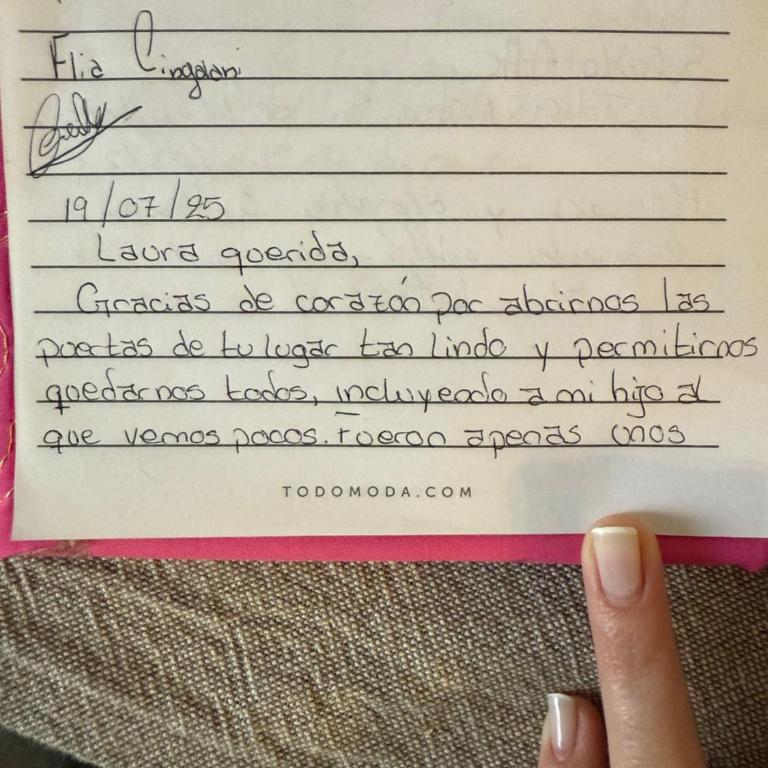 Flia Cingolani
19/07/25
Laura querida,
Gracias de corazón por abrirnos las
puertas de tu lugar tan lindo y permitirnos
quedarnos todos, incluyendo a mi hijo al
que vemos pocos. Fueron apenas unos
TODOMODA.COM